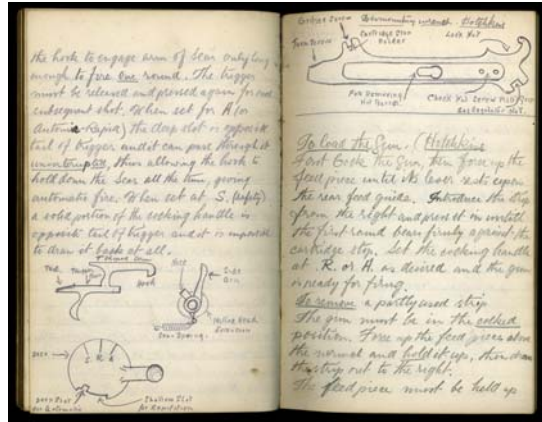 the hook to engage arm of Sear only long
enough to fire one round. The trigger
must be released and pressed again for each
subsequent shot. When set for A (or
Automatic Rapid) the deep slot is opposite
tail of trigger and it can pass through it
uninterrupted, thus allowing the hook to
hold down the Sear all the time, giving
automatic fire. When set at S. (Safety)
a solid portion of the cocking handle is
opposite tail of trigger and it is impossible
to draw it back at all.
Hook
Sear
Arm
Sear Spring.
S R A
Deep Slot
for Automatic
Shallow Slot
for Repetition
Dismounting wrench. Hotchkiss
Cartridge Stop
Lock Nut
For Removing
Check Nut Screw
To load the Gun. (Hotchkiss
First Cock the Gun, then force up the
feed piece until its lever rests upon
the rear feed guide. Introduce the strip
from the right and press it in until
the first round bears firmly against the
cartridge stop. Set the cocking handle
at .R. or A. as desired and the gun
is ready for firing.
To remove a partly used strip
The gun must be in the cocked
position. Force up the feed piece above
the normal and hold it up, then draw
the strip out to the right.
The feed piece must be held up